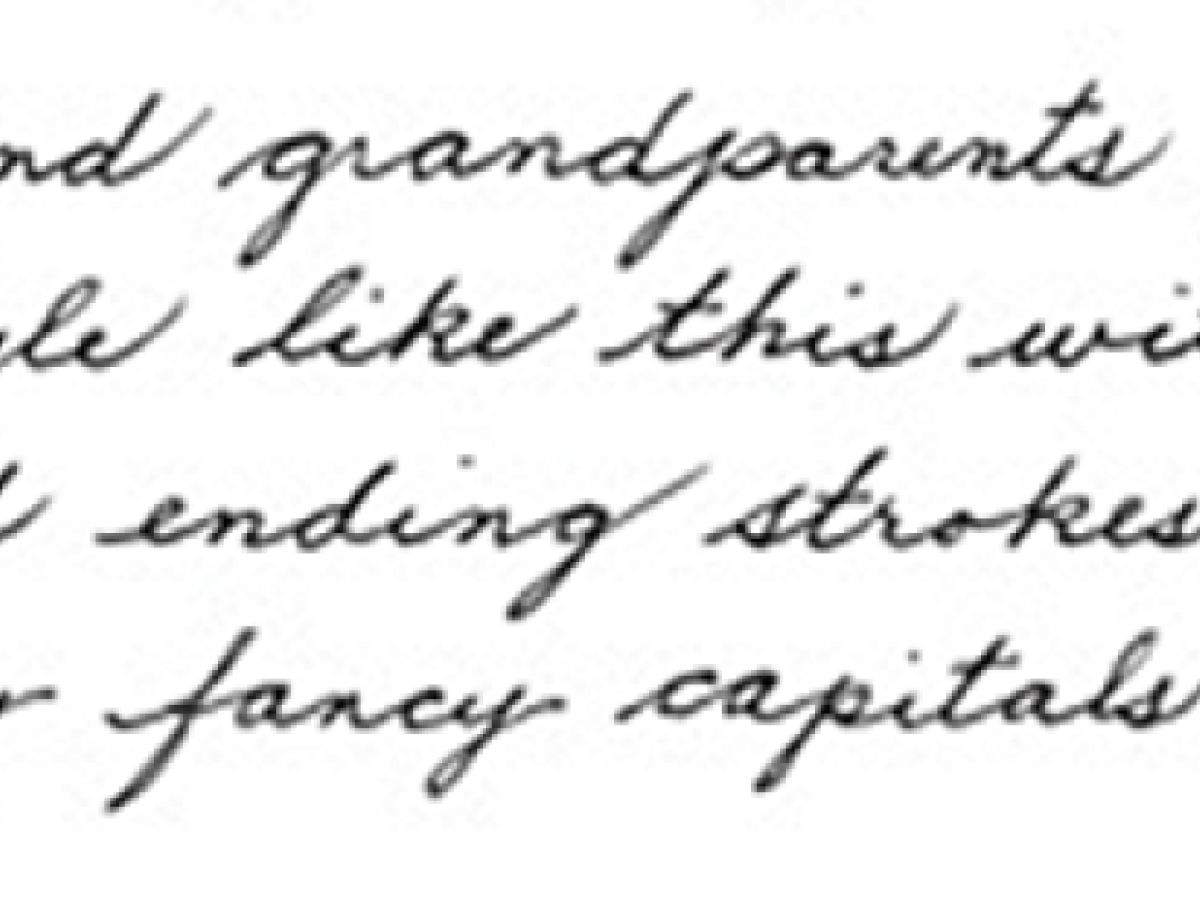 nd grandparents
yle like this wi
ending strokes
fancy capitals